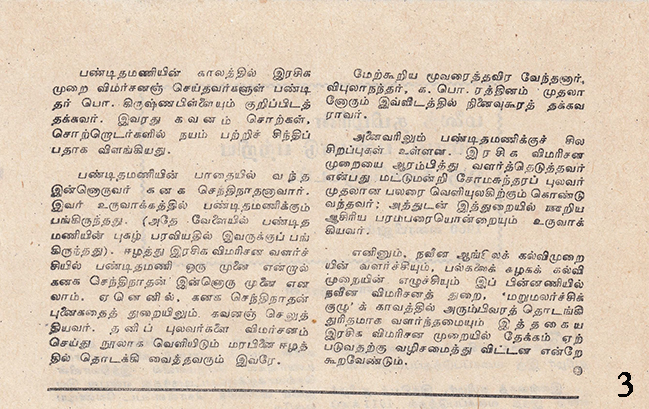 பண்டிதமணியின் காலத்தில் இரசிக
முறை விமர்சனஞ் செய்தவர்களுள் பண்டி
தர் பொ. கிருஷ்ணபிள்ளையும் குறிப்பிடத்
தக்கவர். இவரது கவனம் சொற்கள்,
சொற்றொடர்களில் நயம் பற்றிச் சிந்திப்
பதாக விளங்கியது.
பண்டிதமணியின் பாதையில் வந்த
இன்னொருவர் கனக செந்திநாதனாவார்.
இவர் உருவாக்கத்தில் பண்டிதமணிக்கும்
பங்கிருந்தது. (அதே வேளையில் பண்டித
மணியின் புகழ் பரவியதில் இவருக்குப் பங்
கிருந்தது). ஈழத்து இரசிக விமரிசன வளர்ச்
சியில் பண்டிதமணி ஒரு முனை என்றால்
கனக செந்திநாதன் இன்னொரு முனை என
லாம். ஏனெனில், கனக செந்திநாதன்
புனைகதைத் துறையிலும். கவனஞ் செலுத்
தியவர். தனிப் புலவர்களை விமர்சனம்
செய்து நூலாக வெளியிடும் மரபினை ஈழத்
தில் தொடக்கி வைத்தவரும் இவரே.
மேற்கூறிய மூவரைத்தவிர வேந்தனார்,
விபுலாநந்தர், க. பொ. ரத்தினம் முதலா
னோரும் இவ்விடத்தில் நினைவுகூரத் தக்கவ
ராவர்.
அனைவரிலும் பண்டிதமணிக்குச் சில
சிறப்புகள் உள்ளன. இரசிக விமரிசன
முறையை ஆரம்பித்து வளர்த்தெடுத்தவர்
என்பது மட்டுமன்றி சோமசுந்தரப் புலவர்
முதலான பலரை வெளியுலகிற்கும் கொண்டு
வந்தவர்; அத்துடன் இத்துறையில் ஊறிய
ஆசிரிய பரம்பரையொன்றையும் உருவாக்
கியவர்.
எனினும், நவீன ஆங்கிலக் கல்விமுறை
யின் வளர்ச்சியும், பல்கலைக் கழகக் கல்வி
முறையின் எழுச்சியும் இப் பின்னணியில்
நவீன விமரிசனத் துறை, 'மறுமலர்ச்சிக்
குழு'க் காலத்தில் அரும்பிவரத் தொடங்கி
துரிதமாக வளர்ந்தமையும் இத்தகைய
இரசிக விமரிசன முறையில் தேக்கம் ஏற்
படுவதற்கு வழிசமைத்து விட்டன என்றே
கூறவேண்டும்.
3